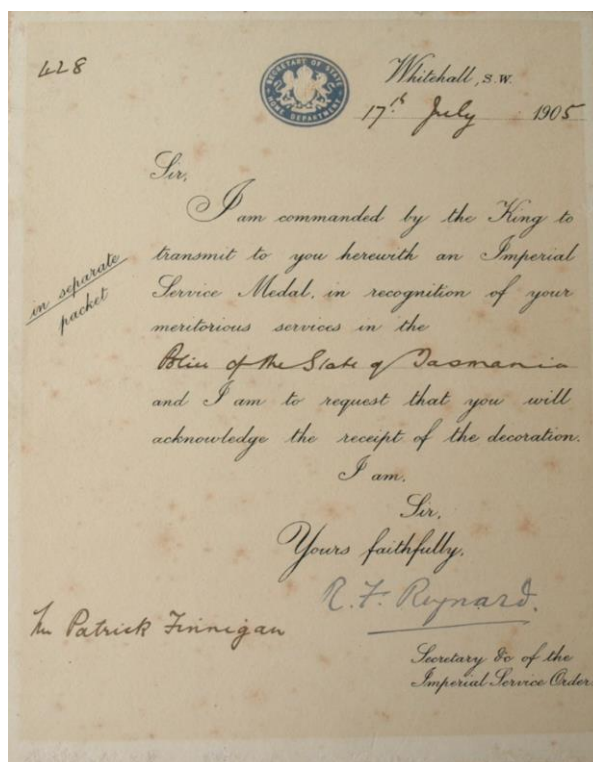 428
SECRETARY OF STATE
HOME DEPARTMENT
Whitehall, S.W.
17th July 1905
Sir,
I am commanded by the King to
transmit to you herewith an Imperial
Service Medal, in recognition of your
meritorious services in the
Police of the State of Tasmania
and I am to request that you will
acknowledge the receipt of the decoration.
I am,
Sir,
Yours faithfully,
R. F. Reynard.
Secretary &c of the
Imperial Service Order.
in separate
packet
Mr Patrick Finnigan